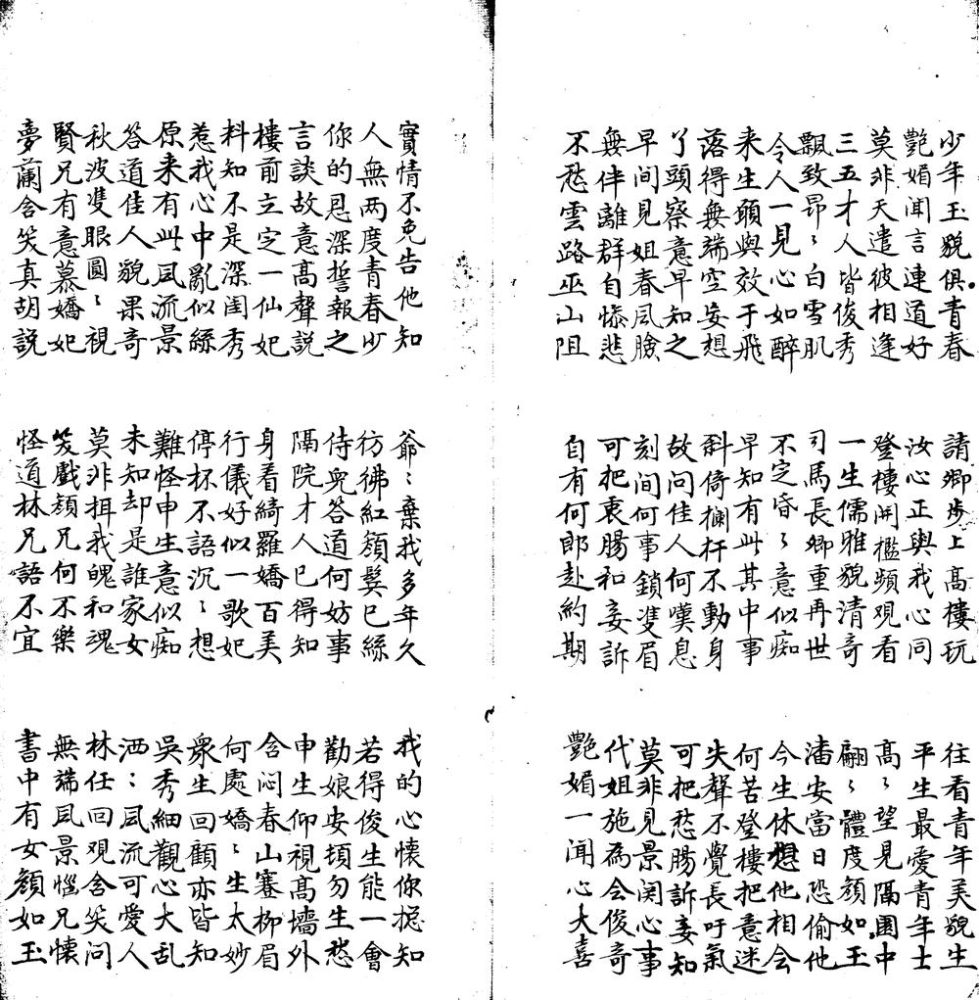 少年玉貌俱青春
請卿步上高樓玩
往看青年美貌生
艷媚聞言連道好
汝心正與我心同
平生最愛青年士
莫非天遣彼相逢
登樓開檻頻觀看
高々望見隔園中
三五才人皆俊秀
一生儒雅貌清奇
翩々體度顏如玉
飄致昂々白雪肌
司馬長卿重再世
潘安當日恐偷他
令人一見心如醉
不定昏々意似痴
今生休想他相会
来生願與效于飛
早知有此其中事
何苦登樓把意迷
落得無端空妄想
斜倚欄杆不動身
失聲不覺長吁氣
丫頭察意早知之
故問佳人何嘆息
可把愁腸訴妾知
早間見姐春風臉
刻間何事鎖雙眉
莫非見景関心事
無伴離群自慘悲
可把衷腸和妾訴
代姐施為会俊奇
不愁雲路巫山阻
自有何郎赴約期
艷媚一聞心大喜
實情不免告他知
爺々棄我多年久
我的心懷你捴知
人無两度青春少
彷彿紅顏鬓已絲
若得俊生能一會
你的恩深誓報之
侍兒答道何妨事
勸娘安頓勿生愁
言談故意高聲説
隔院才人已得知
申生仰視高墻外
樓前立定一仙妃
身着綺羅嬌百美
含闷春山蹇柳眉
料知不是深闺秀
行儀好似一歌妃
何處嬌々生太妙
惹我心中亂似絲
停杯不語沉々想
衆生回顧亦皆知
原来有此風流景
難怪申生意似痴
吳秀細觀心大乱
答道佳人貌果奇
未知却是誰家女
洒々風流可愛人
秋波雙眼圓々視
莫非挕我魄和魂
林任回观含笑問
賢兄有意慕嬌妃
笑戲顏兄何不樂
無端風景惱兄懷
夢蘭含笑真胡説
怪道林兄語不宜
書中有女顏如玉